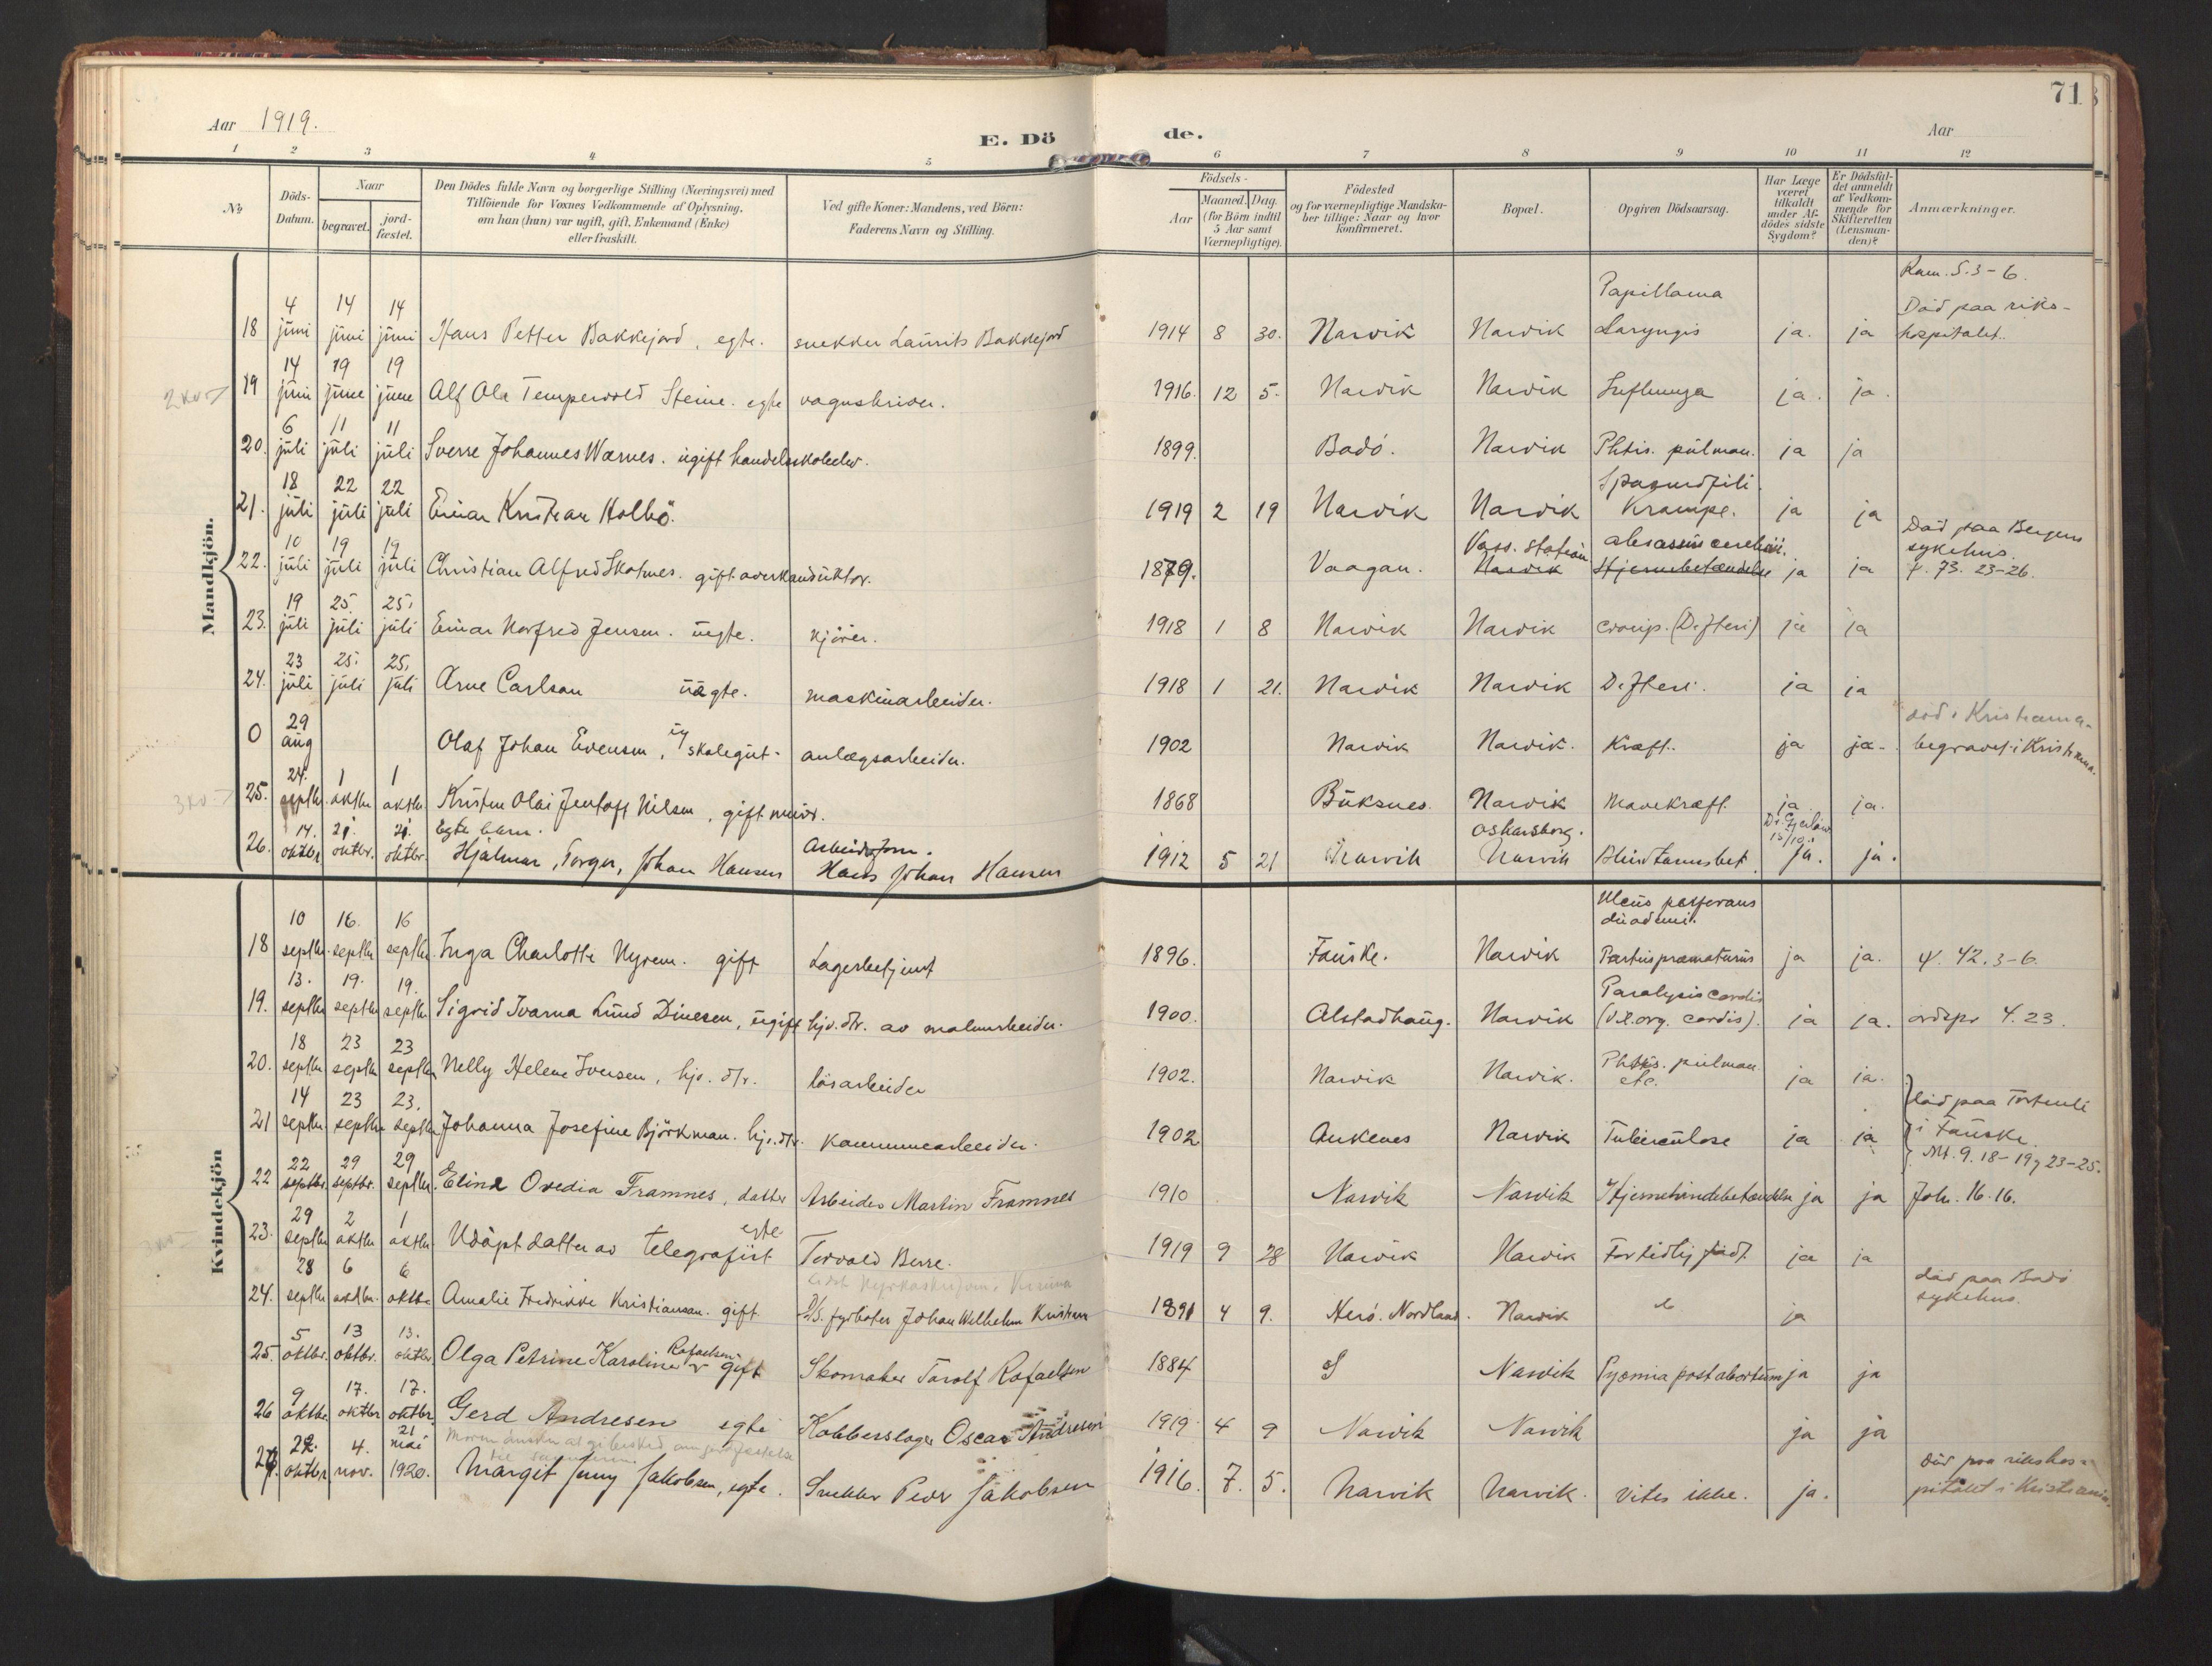 71
Aar 1919.
E. Dö de.
Aar
1 2 3 4 5 6 7 8 9 10 11 12
№
Döds-Datum.
Naar
begravet.
jord-fæstet.
Den Dödes fulde Navn og borgerlige Stilling (Næringsvei) med
Tilföiende for Voxnes Vedkommende af Oplysning,
om han (hun) var ugift, gift, Enkemand (Enke)
eller fraskilt.
Ved gifte Koner: Mandens, ved Börn:
Faderens Navn og Stilling.
Födsels-
Aar
Maaned. Dag.
(for Börn indtil
5 Aar samt
Værnepligtige).
Födested
og for værnepligtige Mandska-
ber tillige: Naar og hvor
konfirmeret.
Bopæl.
Opgiven Dödsaarsag.
Har Læge
været
tilkaldt
under Af-
dödes sidste
Sygdom?
Er Dödsfal-
det anmeldt
af Vedkom-
mende for
Skifteretten
(Lensman-
den)?
Anmærkninger.
Mandkjön.
18 4 juni 14 juni 14 juni Hans Petter Bakkejord, egte. snekker Laurits Bakkejord 1914 8 30. Narvik Narvik Papilloma Laryngis ja. ja Rom. 5.3-6. Död paa riks-hospitalet.
19 14 juni 19 june 19 june Alf Ola Tempervold Steine. egte vognskriver. 1916. 12 5. Narvik Narvik Influenza ja. ja.
20. 6 juli 11 juli 11 juli Sverre Johannes Warnes. ugift handelsskoleelev. 1899. Bodö. Narvik Phtis. pulmon. ja ja
21. 18 juli 22 juli 22 juli Einar Kristian Holbö. 1919 2 19 Narvik Narvik Spasmofili. Krampe. ja ja
22. 10 juli 19 juli 19 juli Christian Alfred Skotnes. gift overkonduktör. 1879. Vaagan. Voss. station Narvik abscessus cerebri. Hjernebetændelse ja ja Död paa Bergens sykehus. ψ. 73. 23-26.
23. 19 juli 25. juli 25. juli Einar Norfred Jensen. uegte. kjörer. 1918 1 8 Narvik Narvik croup. (Difteri) ja ja
24. 23 juli 25. juli 25. juli Arne Carlson uægte. maskinarbeider. 1918 1 21. Narvik Narvik Difteri. ja ja
0 29 aug Olaf Johan Evensen, ug skolegut- anlægsarbeider. 1902 Narvik Narvik. Kræft. ja ja. död i Kristiania- begravet i Kristiania.
25. 24. septbr. 1 oktbr 1 oktbr. Kristen Olai Jentoft Nilsen, gift murer. 1868 Buksnes. Narvik Mavekræft. ja ja.
26. 14. oktbr 21. oktbr. 21. oktbr. Egte barn. Hjalmar, Torger, Johan Hansen Arbeidsform. Hans Johan Hansen 1912 5 21 Narvik Oskarsborg. Narvik Blindtarmsbet. Dr. 13/10 ja. ja.
Kvindekjön
18 10 septbr. 16. septbr 16 septbr. Inga Charlotte Nyrem. gift Lagerbetjent 1896. Fauske. Narvik Ulcus perforans duodeni. Partus præmaturus ja ja. ψ. 42. 3-6.
19. 13. septbr 19. septbr 19. septbr. Sigrid Ivarna Lund Dinesen, ugift hjv. dtr. av malmarbeider. 1900. Alstadhaug. Narvik Paralysis cordis (V. org. cordis). ja ja. ordspr 4.23.
20. 18 septbr 23 septbr 23 septbr Nelly Helene Iversen, hjv. dtr. lösarbeider 1902. Narvik Narvik. Phtis. pulmon. etc. ja ja.
21 14 septbr. 23 septbr 23. septbr Johanna Josefine Björkman. hjv. dtr. kommunearbeider. 1902 Ankenes Narvik Tuberculose ja ja död paa Tortenli i Fauske. Mt. 9. 18-19, 23-25.
22 22 septbr. 29 septbr. 29 septbr. Elina Ovedia Framnes, datter Arbeider Martin Framnes 1910 Narvik Narvik Hjernehindebetændelse ja ja Joh. 16. 16.
23. 29 septbr 2 oktbr 1 oktbr. Udöpt datter av egte telegrafist Torvald Berre. 1919 9 28 Narvik Narvik For tidlig född. ja ja
24. 28 septbr 6 oktbr. 6 oktbr. Amalie Fredrikke Kristiansen. gift D/S. fyrböter Johan Wilhelm Kristiansen 1891 4 9. Herö. Nordland. Narvik ja död paa Bodö sykehus.
25. 5 oktbr. 13 oktbr. 13. oktbr Olga Petrine Karoline Rafaelsen gift Skomaker Torolf Rafaelsen 1884 Narvik Pyæmia post abortum ja ja
26 9 oktbr. 17. oktbr 17. oktbr. Gerd Andresen egte Kobberslager Oscar Andresen 1919. 4 9 Narvik Narvik ja ja
27. 22. oktbr 4. nov. 21 mai 1920. Margit Jenny Jakobsen, egte. Snekker Peder Jakobsen 1916. 7. 5. Narvik Narvik. Vites ikke. ja. Död paa rikshos-pitalet i Kristiania.